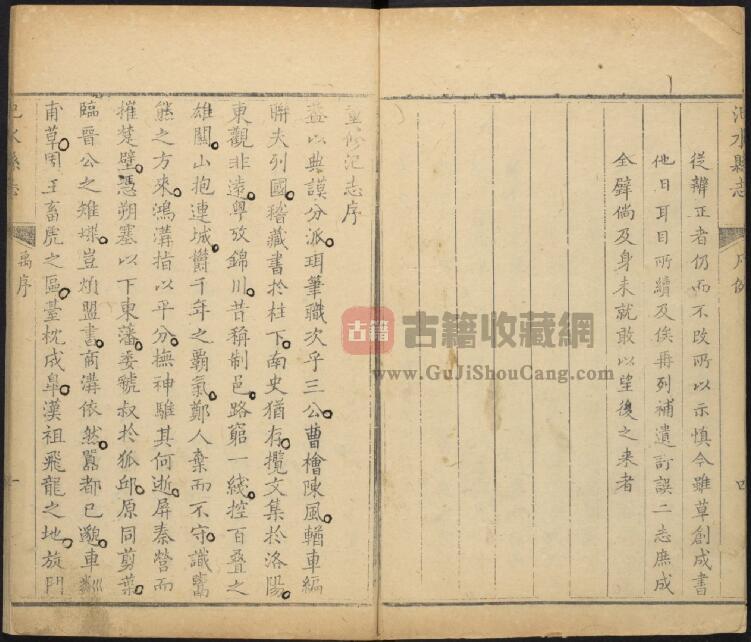 汜水縣志
凡例
四
從辨正者仍而不改所以示慎今雖草創成書
他日耳目所續及俟再列補遺訂誤二志庶成
全璧倘及身未就敢以望後之来者
重修汜志序
蓋以典謨分派珥筆職次乎三公曹檜陳風輶車編
聯夫列國稽藏書於柱下南史猶存攬文集於洛陽
東觀非遠粤攷錦川昔稱制邑路窮一綫控百叠之
雄關山抱連城欝千年之霸氣鄭人棄而不守識
熊之方來鴻溝指以平分撫神騅其何逝屏秦營而
摧楚壁憑朔塞以下東藩委虢叔於狐邱原同剪葉
臨晉公之雉堞豈煩盟書商溝依然囂都已邈車
甫草周王畜虎之區臺枕成皐漢祖飛龍之地旋門
汜水縣志
禹序
一
古籍
古籍收藏網
www.GuJiShouCang.com